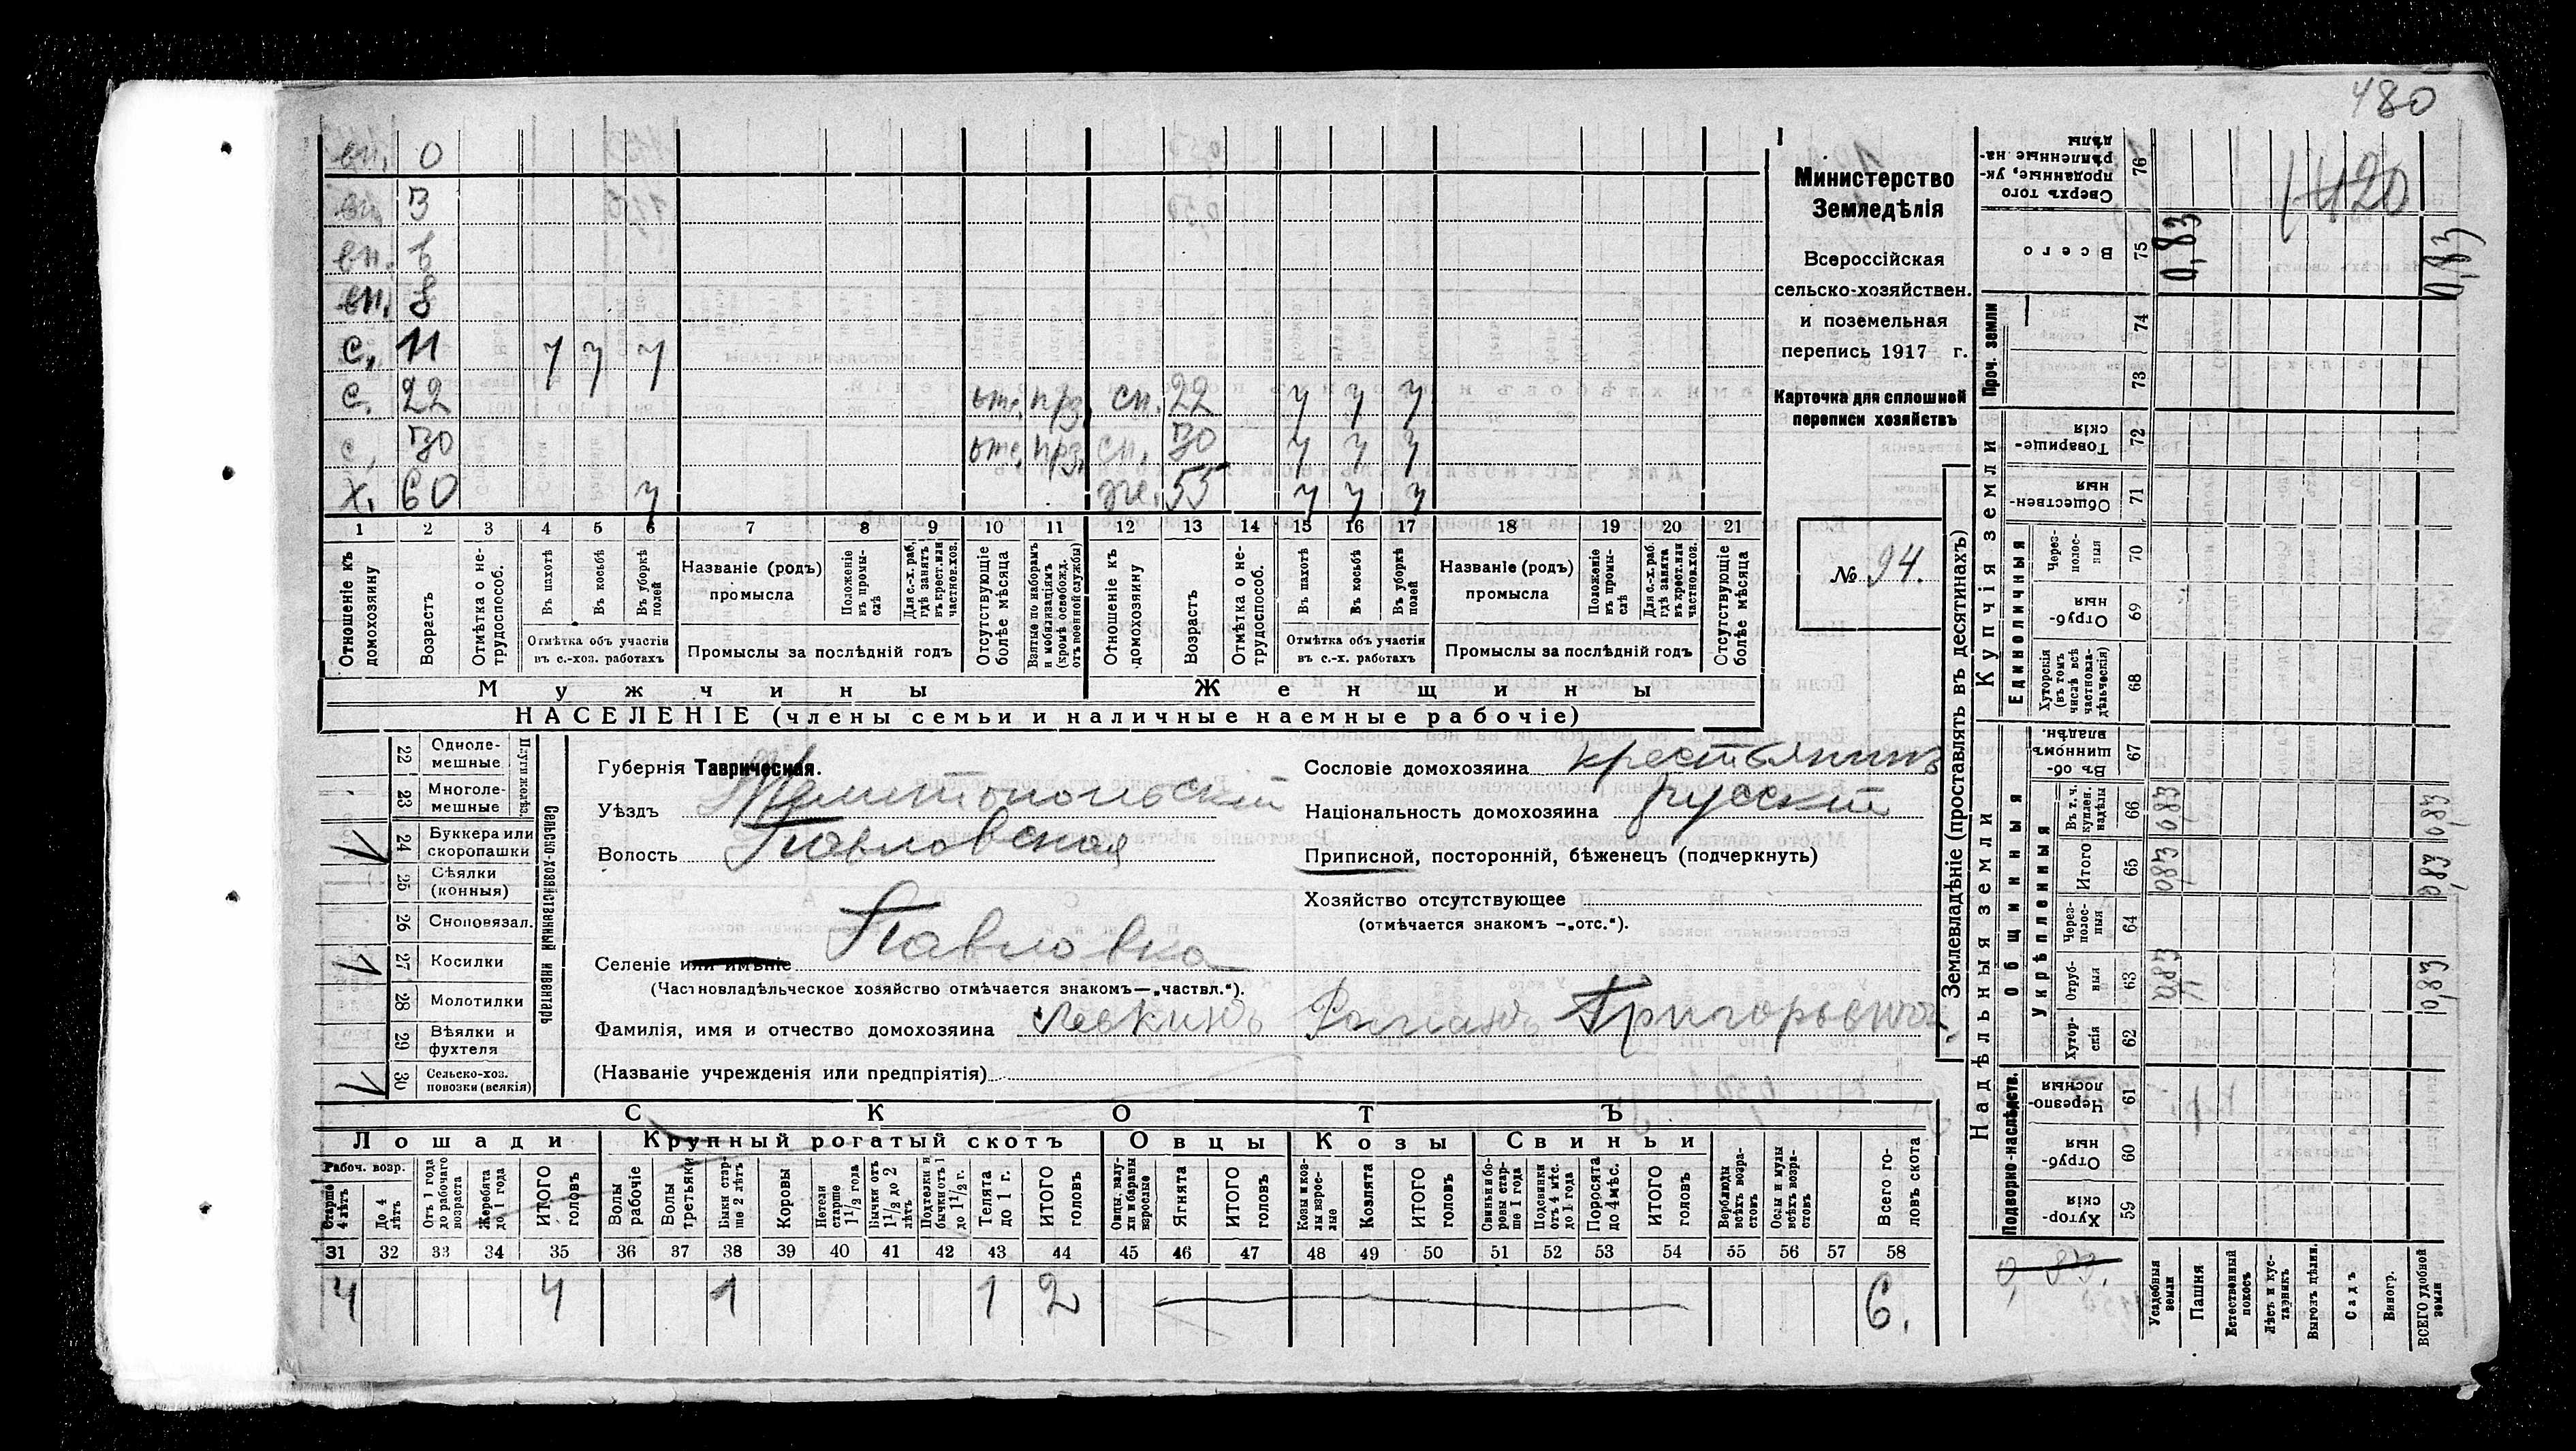 480
вн. 0
вн. 3
вн. 6
вн. 8
с. 11 у у у
с. 22 отс. прз. сн. 22 у у у
с. 30 отс. прз. сн. 30 у у у
х. 60 у же. 55 у у у
1 2 3 4 5 6 7 8 9 10 11 12 13 14 15 16 17 18 19 20 21
Отношеніе къ домохозяину
Возрастъ
Отмѣтка о не-трудоспособ.
Въ пахотѣ
Въ косьбѣ
Въ уборкѣ полей
Отмѣтка объ участіи въ с.-хоз. работахъ
Названіе (родъ) промысла
Положеніе въ промы-слѣ
Для с.-х. раб. гдѣ занятъ въ крест. или частнов. хоз.
Промыслы за послѣдній годъ
Отсутствующіе болѣе мѣсяца
Взятые по наборамъ и мобилизаціямъ (кромѣ освобожд. отъ военной службы)
Отношеніе къ домохозяину
Возрастъ
Отмѣтка о не-трудоспособ.
Въ пахотѣ
Въ косьбѣ
Въ уборкѣ полей
Отмѣтка объ участіи въ с.-х. работахъ
Названіе (родъ) промысла
Положеніе въ промы-слѣ
Для с.-х. раб. гдѣ занята въ крест. или частнов. хоз.
Промыслы за послѣдній годъ
Отсутствующіе болѣе мѣсяца
Мужчины Женщины
НАСЕЛЕНІЕ (члены семьи и наличные наемные рабочіе)
Министерство
Земледѣлія
Всероссійская
сельско-хозяйствен.
и поземельная
перепись 1917 г.
Карточка для сплошной
переписи хозяйствъ
№ 94.
Сельско-хозяйственный инвентарь
Плуги колѣз.
22 Одноле-мешные
23 Многоле-мешные
24 Буккера или скоропашки
25 Сѣялки (конныя)
26 Сноповязал.
27 Косилки 1
28 Молотилки
29 Вѣялки и фухтеля
30 Сельско-хоз. повозки (всякія) 1
Губернія Таврическая.
Уѣздъ Мелитопольскій
Волость Павловская
Селеніе или имѣніе Павловка
(Частновладѣльческое хозяйство отмѣчается знакомъ—„частвл.“).
Фамилія, имя и отчество домохозяина Левкинъ Романъ Григорьевичъ
(Названіе учрежденія или предпріятія)
Сословіе домохозяина крестьянинъ
Національность домохозяина русскій
Приписной, посторонній, бѣженецъ (подчеркнуть)
Хозяйство отсутствующее
(отмѣчается знакомъ —„отс.“).
СКОТЪ
Лошади Крупный рогатый скотъ Овцы Козы Свиньи
Рабоч. возр.
Старше 4 лѣтъ
До 4 лѣтъ
Отъ 1 года до рабочаго возраста
Жеребята до 1 года
ИТОГО головъ
Волы рабочіе
Волы третьяки
Быки стар-ше 2 лѣтъ
Коровы
Нетели старше 1 1/2 года
Бычки отъ 1 1/2 до 2 лѣтъ
Подтелки и бычки отъ 1 до 1 1/2 г.
Телята до 1 г.
ИТОГО головъ
Овцы, валу-хи и бараны взрослые
Ягнята
ИТОГО головъ
Козы и коз-лы взрос-лые
Козлята
ИТОГО головъ
Свиньи и бо-ровы стар-ше 1 года
Подсвинки отъ 4 мѣс. до 1 года
Поросята до 4 мѣс.
ИТОГО головъ
Верблюды всѣхъ возра-стовъ
Ослы и мулы всѣхъ возра-стовъ
Всего го-ловъ скота
31 32 33 34 35 36 37 38 39 40 41 42 43 44 45 46 47 48 49 50 51 52 53 54 55 56 57 58
4 4 1 1 2 6.
Землевладѣніе (проставлять въ десятинахъ)
Надѣльныя земли
Купчія земли
Проч. земли
Подворно-наслѣдств.
Общинныя
Укрѣпленныя
Единоличныя
Хутор-скія 59
Отруб-ныя 60
Черезпо-лосныя 61
Хутор-скія 62
Отруб-ныя 63
Через-полос-ныя 64
Итого 65
Въ т. ч. куплен. надѣлы 66
Въ об-щинномъ владѣн. 67
Хуторскія (въ томъ числѣ всѣ частновла-дѣльческія) 68
Отруб-ныя 69
Через-полос-ныя 70
Обществен-ныя 71
Товарище-скія 72
73
74
Всего 75
Сверхъ того проданные, ук-рѣпленные на-дѣлы 76
Усадебныя земли
Пашня
Естественный покосъ
Лѣсъ и кус-тарникъ
Выгонъ цѣлин.
Садъ
Виногр.
ВСЕГО удобной земли
1420
0,83 0,83
083 083
083 0,83
083 0,83